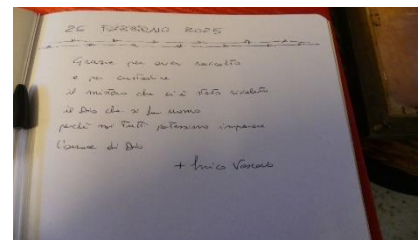 26 FEBBRAIO 2025
Grazie per aver accolto
e per custodire
il mistero che ci è stato rivelato
il Dio che si fa uomo
perché noi tutti potessimo imparare
l'amore di Dio
+ Vescovo